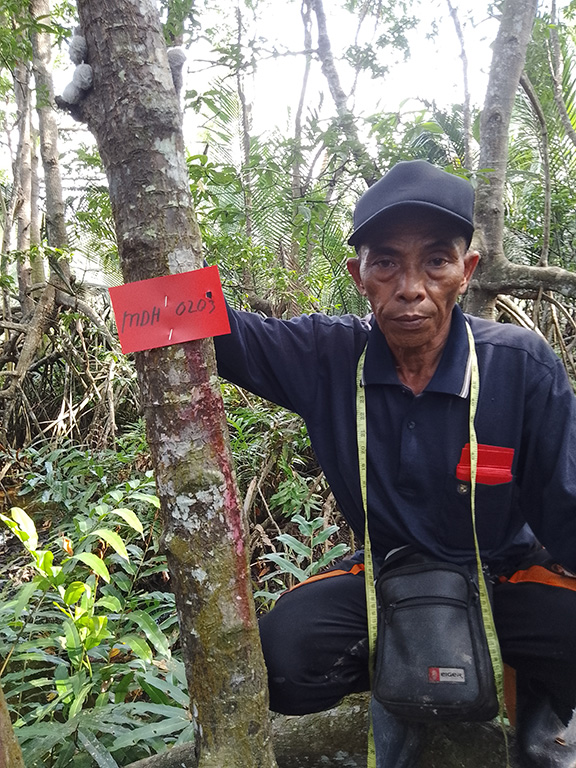 MDH 0203
EIGER